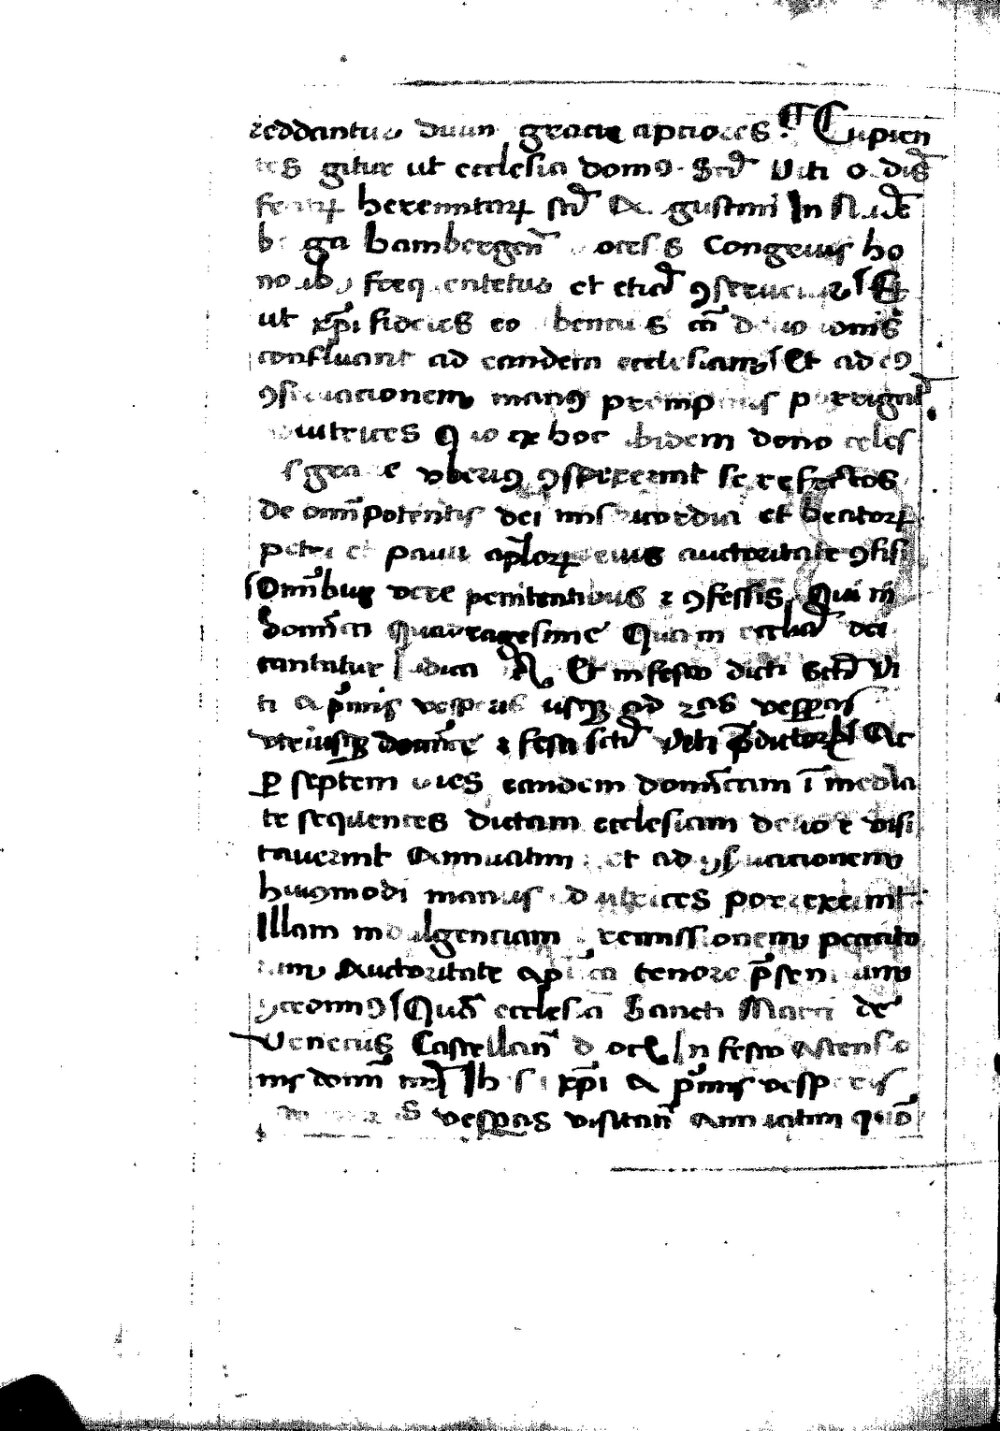 reddantur diuin gracie apciores. ¶ Cupien
tes gitur ut ecclesia domꝯ Scī Viti o diḡ
fratrꝝ heremitarꝝ scī A gustini In
b ga bambergen̄ oces s Congruis ho
no ibꝰ freq entetur et etiā ꝯseruetur Et
ut xp̄i fideles eo benciꝰ cā deuocionis
confluant ad eandem ecclesiam Et ad eiꝰ
ꝯseruacionem manꝰ prompcius porrigāt
adiutrices Quo ex hoc ibidem dono celes
s gracie vberiꝰ ꝯspexerint se refectos
de om̄ipotentis dei misericordia et beatorꝝ
petri et pauli apl̄orꝝ eius auctoritate ꝯfisi
Om̄ibus vere penitentibus ⁊ ꝯfessis Qui in
domīca quadragesime Qua in eccl̄ia dei
cantatur Iudica Et in festo dicti Scī Vi
ti a pͥmis vesperis usqꝫ ad 2as vesperas
vtriusqꝫ domīce ⁊ festi scī Viti p̄dictorꝝ Ac
ꝑ septem dies eandem domīcam īmedia
te sequentes dictam ecclesiam deuote visi
tauerint Annuatim et ad ꝯseruacionem
huiꝰmodi manus adiutrices porrexerint
Illam indulgenciam remissionem peccato
rum Auctoritate apl̄ica tenore p̄sencium
ꝯcedimꝰ Quā ecclesia Sancti Marci de
Veneciis Castellan̄ dioc̄ In festo ascensio
nis domī nr̄i Ih s xp̄i a pͥmis vesperis
s vesperas visitan̄ annuatim quō